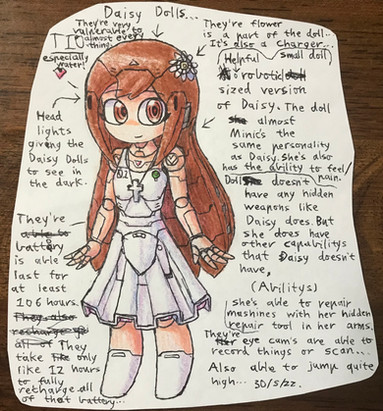 Daisy Dolls...
They're very
vulnerable to
almost every
thing.
especially
water!
Head
lights
giveing the
Daisy Dolls
to see in
the dark.
They're
able to
battery
is able
last for
at least
106 hours.
They also
recharge
all of They
take like only
like 12 hours
to fully
recharge all
of that battery...
They're flower
is a part of the doll...
It's also a charger...
Helpful small doll
A robotic doll
sized version
of Daisy. The doll
she almost
Mimic's the
same personality
as Daisy. She's also
has the ability to feel
pain.
Doll she doesn't
have any hidden
weapons like
Daisy does. But
she does have
other capabilitys
that Daisy doesn't
have,
(Abilitys)
she's able to repair
mashines with her hidden
repair tool in her arms.
They're her eye cam's are able to
record things or scan...
Also able to jump quite
high... 30/5/22.